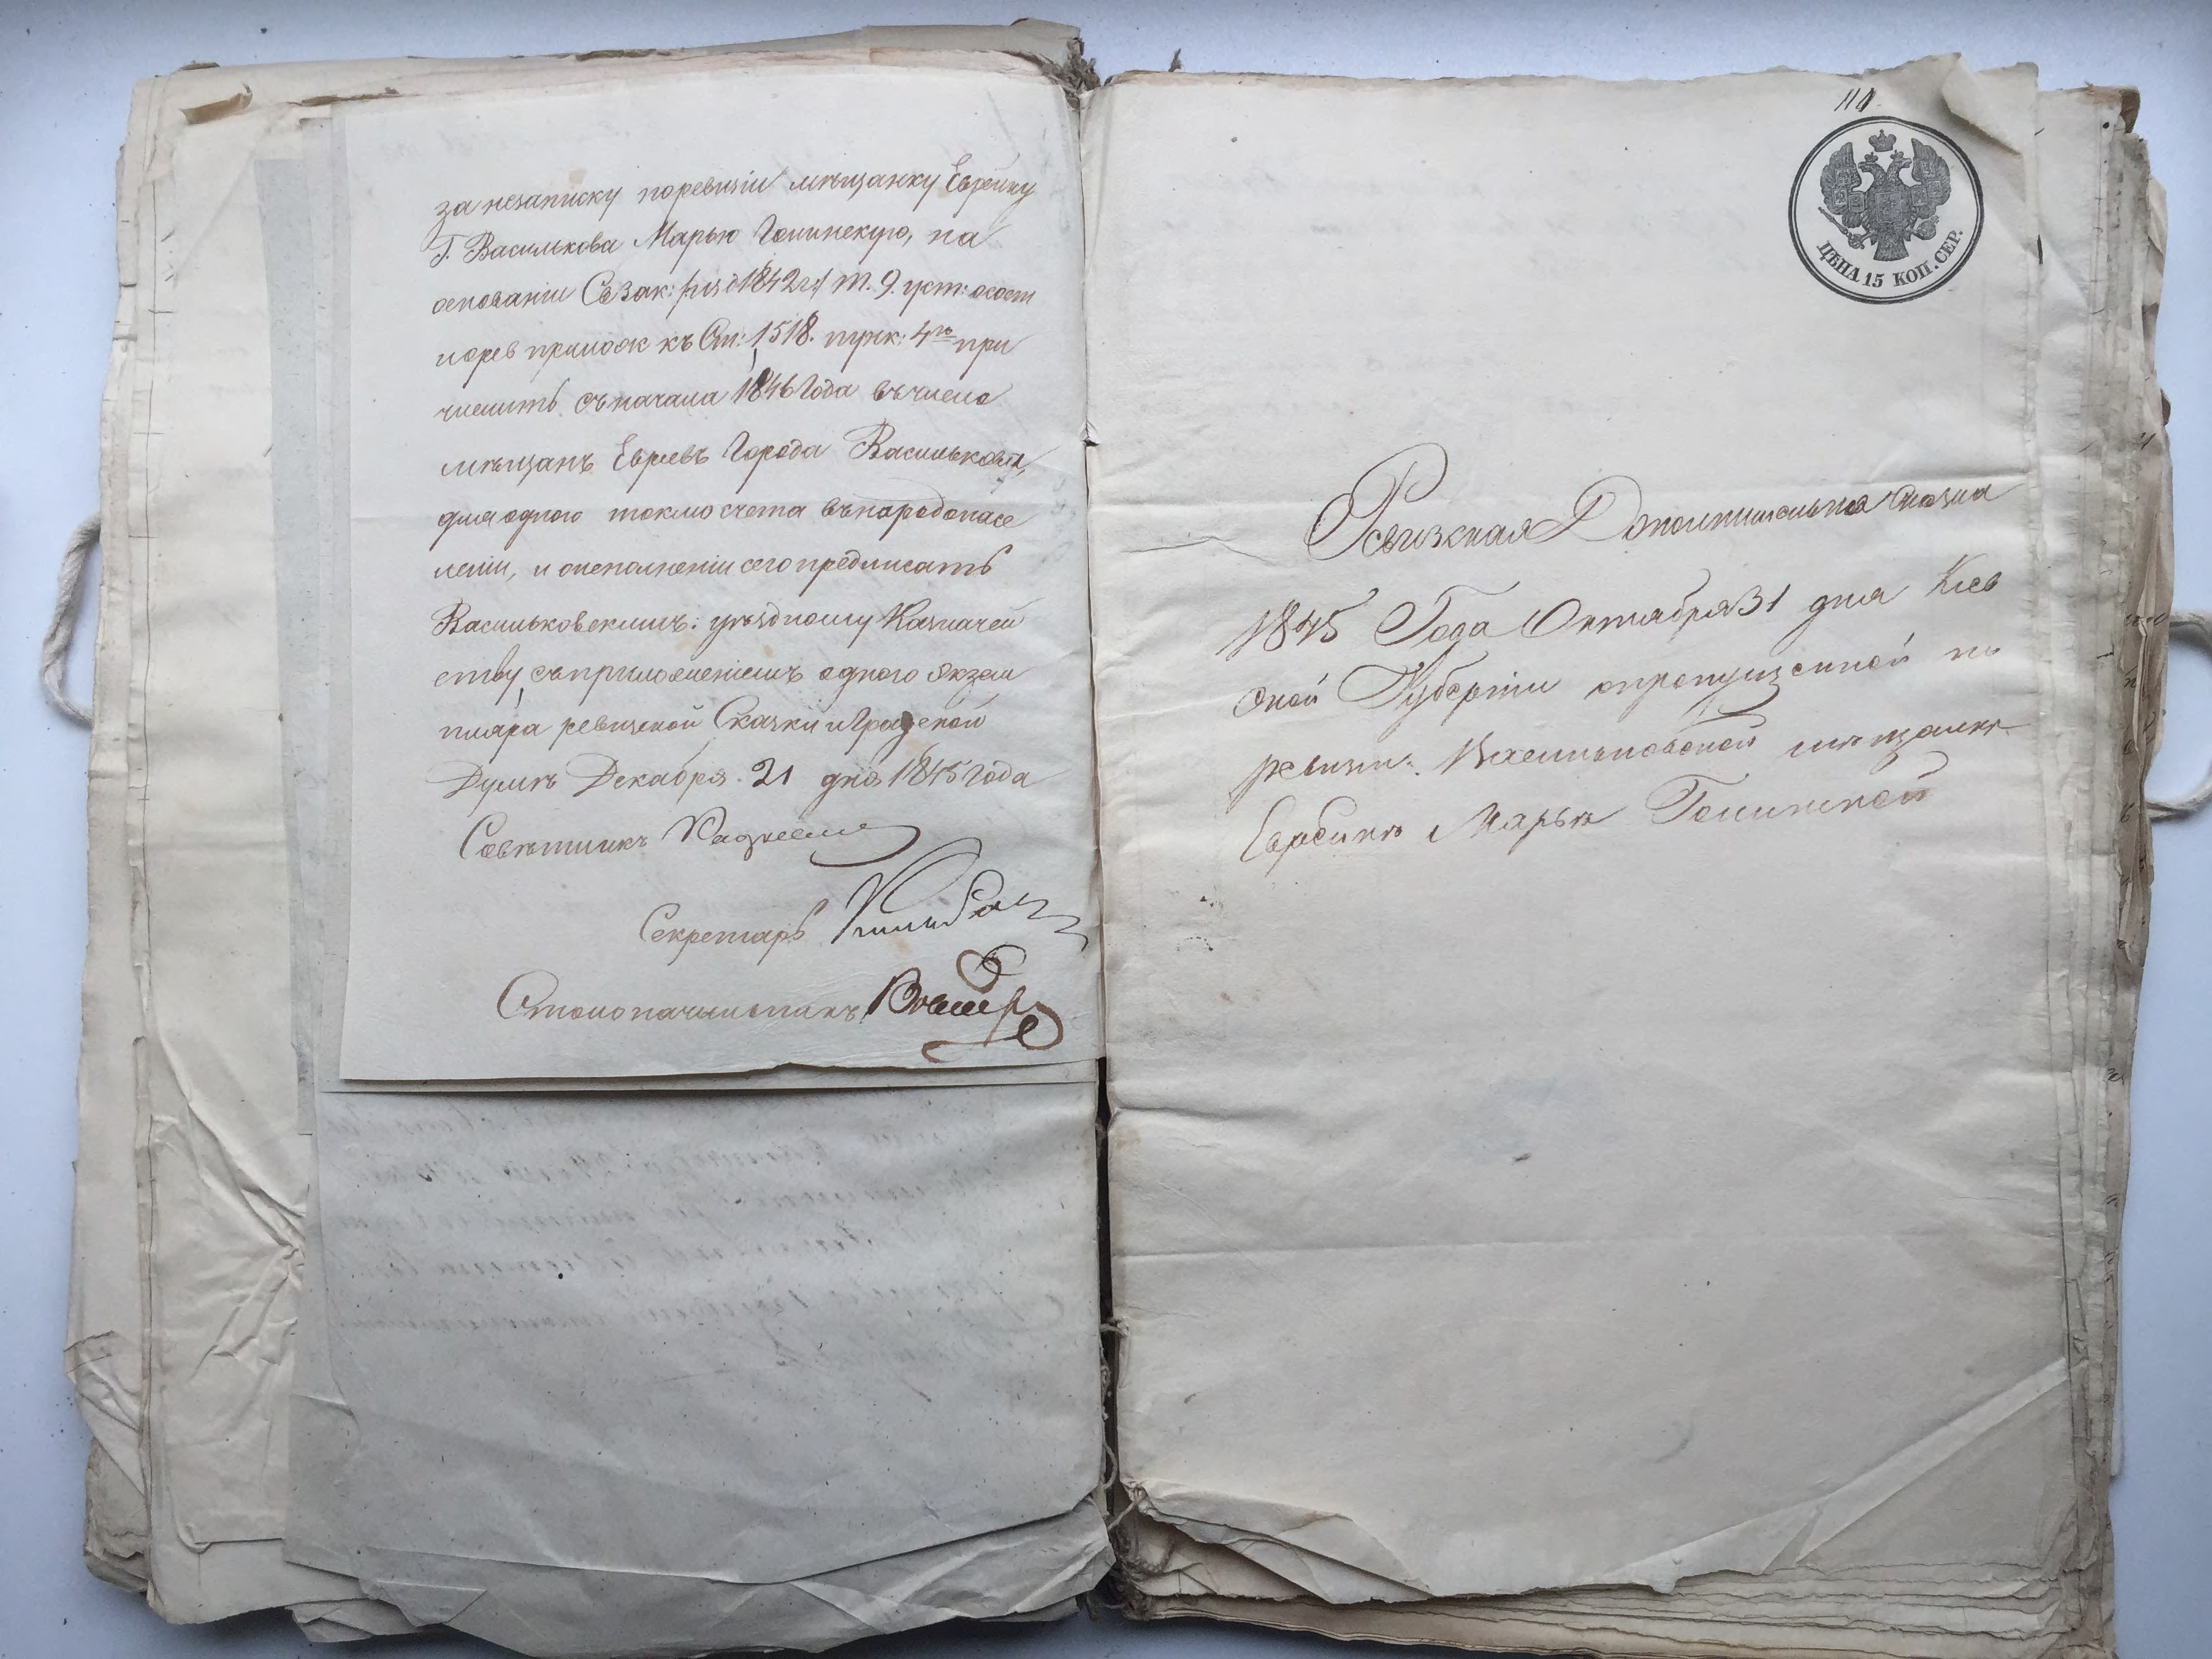 за незаписку поревизіи мѣщанку Еврейку
Г. Василькова Марью Голинскую, на
основаніи Св Зак: /изд 1842 г:/ т. 9. уст: осост
порев прилож къ Ст: 1518. пунк: 4го при
числить съ начала 1846 Года въ число
мѣщанъ Евреевъ Города Василькова,
для одного токмо счета въ народонасе
леніи, и о исполненіи сего предписать
Васильковскимъ: уѣздному Казначей
ству съ приложеніемъ одного экзем
пляра ревизской Сказки и Градской
Думѣ Декабря 21 дня 1845 Года
Совѣтникъ
Секретарь
Столоначальникъ
111
ЦѢНА 15 КОП. СЕР.
Ревизская Дополнительная сказка
1845 Года Октября 31 дня Кіев
ской Губерніи о пропущенной по
ревизіи Васильковской мѣщанкѣ
Еврейкѣ Марьѣ Голинской